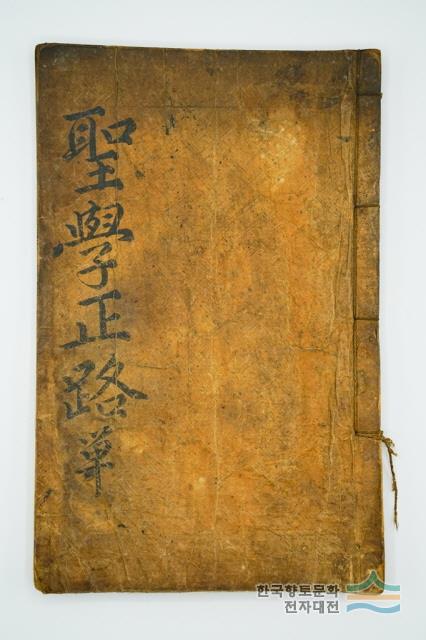 聖學正路 單
한국향토문화
전자대전